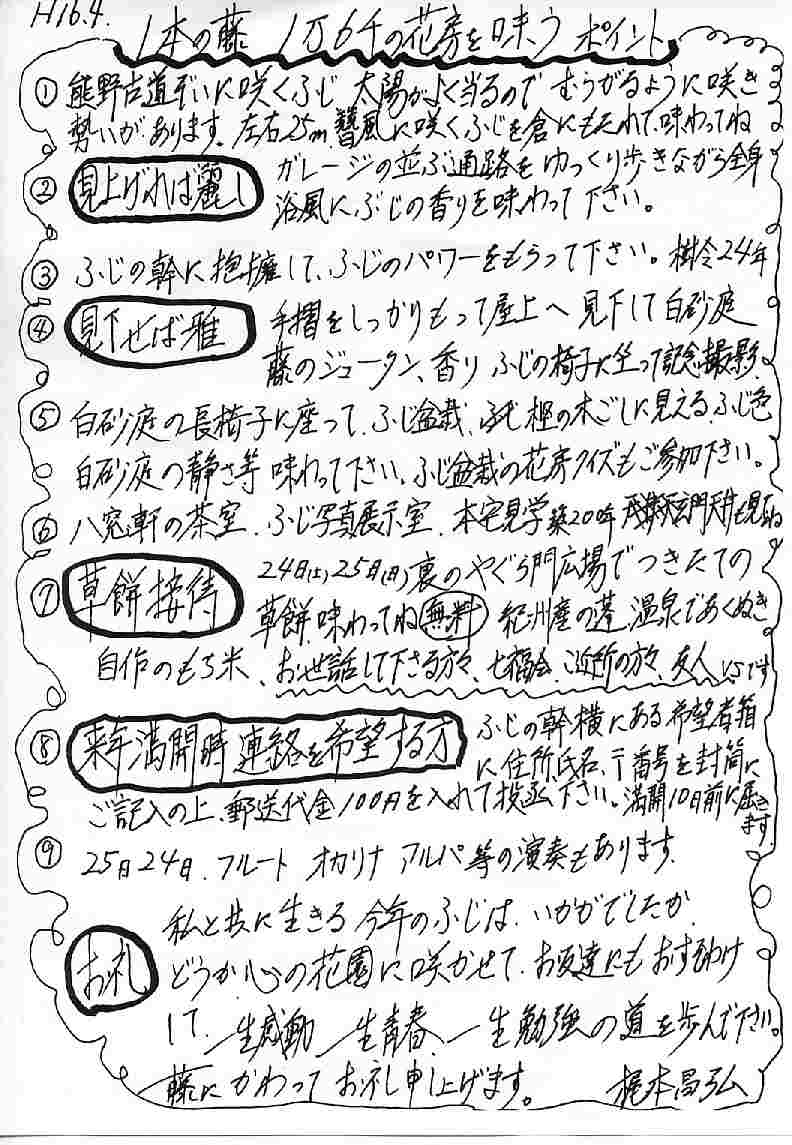 H16.4.
1本の藤 1万6千の花房を味う ポイント
① 熊野古道ぞいに咲くふじ 太陽がよく当るので むらがるように咲き
勢いがあります。左右25m 風に咲くふじを倉にもたれて、味わってね
② 見上げれば麗し ガレージの並ぶ通路を ゆっくり歩きながら全身
浴風に、ふじの香りを味わって下さい。
③ ふじの幹に抱擁して、ふじのパワーをもらって下さい。樹令24年
④ 見下せば雅 手摺をしっかりもって屋上へ 見下して白砂庭
藤のジュータン、香り ふじの椅子に坐って記念撮影、
⑤ 白砂庭の長椅子に座って、ふじ盆栽、 木ごしに見える、ふじ色
白砂庭の静さ等 味わって下さい、ふじ盆栽の花房クイズもご参加下さい。
⑥ 八窓軒の茶室、ふじ写真展示室、本宅見学 築200年 も見てね
⑦ 草餅接待 24日(土)25日(日)裏のやぐら門広場でつきたての
草餅、味わってね 無料 紀州産の蓬、温泉であくぬき。
自作のもち米、お世話して下さる方々、七福会、ご近所の方々、友人 です
⑧ 来年満開時 連絡を希望する方 ふじの幹横にある希望者箱
に住所氏名、〒番号を封筒に
ご記入の上、郵送代金100円を入れて投函下さい。満開10日前に届き
ます
⑨ 25日24日、フルート オカリナ アルパ等の演奏もあります。
お礼 私と共に生きる 今年のふじは、いかがでしたか、
どうか心の花園に咲かせて、お友達にもおすそわけ
して、一生感動 一生青春、一生勉強の道を歩んで下さい。
藤にかわって お礼申し上げます。 梶本昌弘